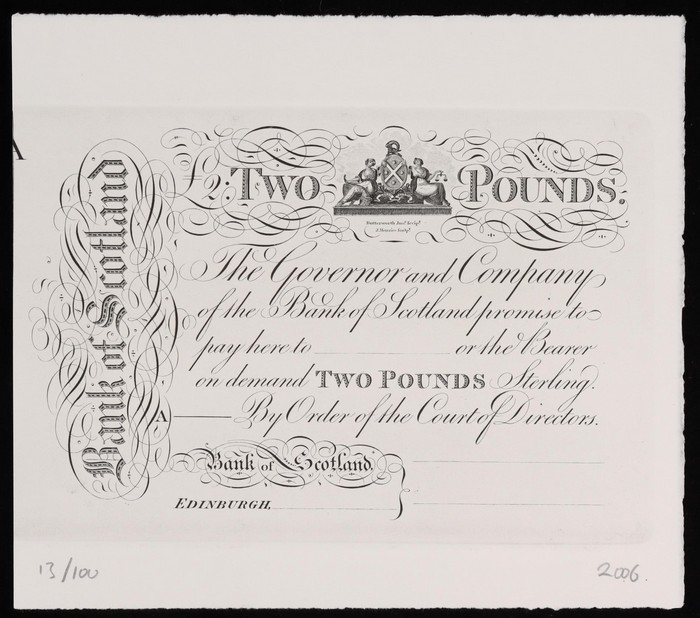 A
Bank of Scotland
£2: TWO POUNDS.
The Governor and Company
of the Bank of Scotland promise to
pay here to or the Bearer
on demand TWO POUNDS Sterling.
A By Order of the Court of Directors.
Bank of Scotland
EDINBURGH,
13/100
2006.